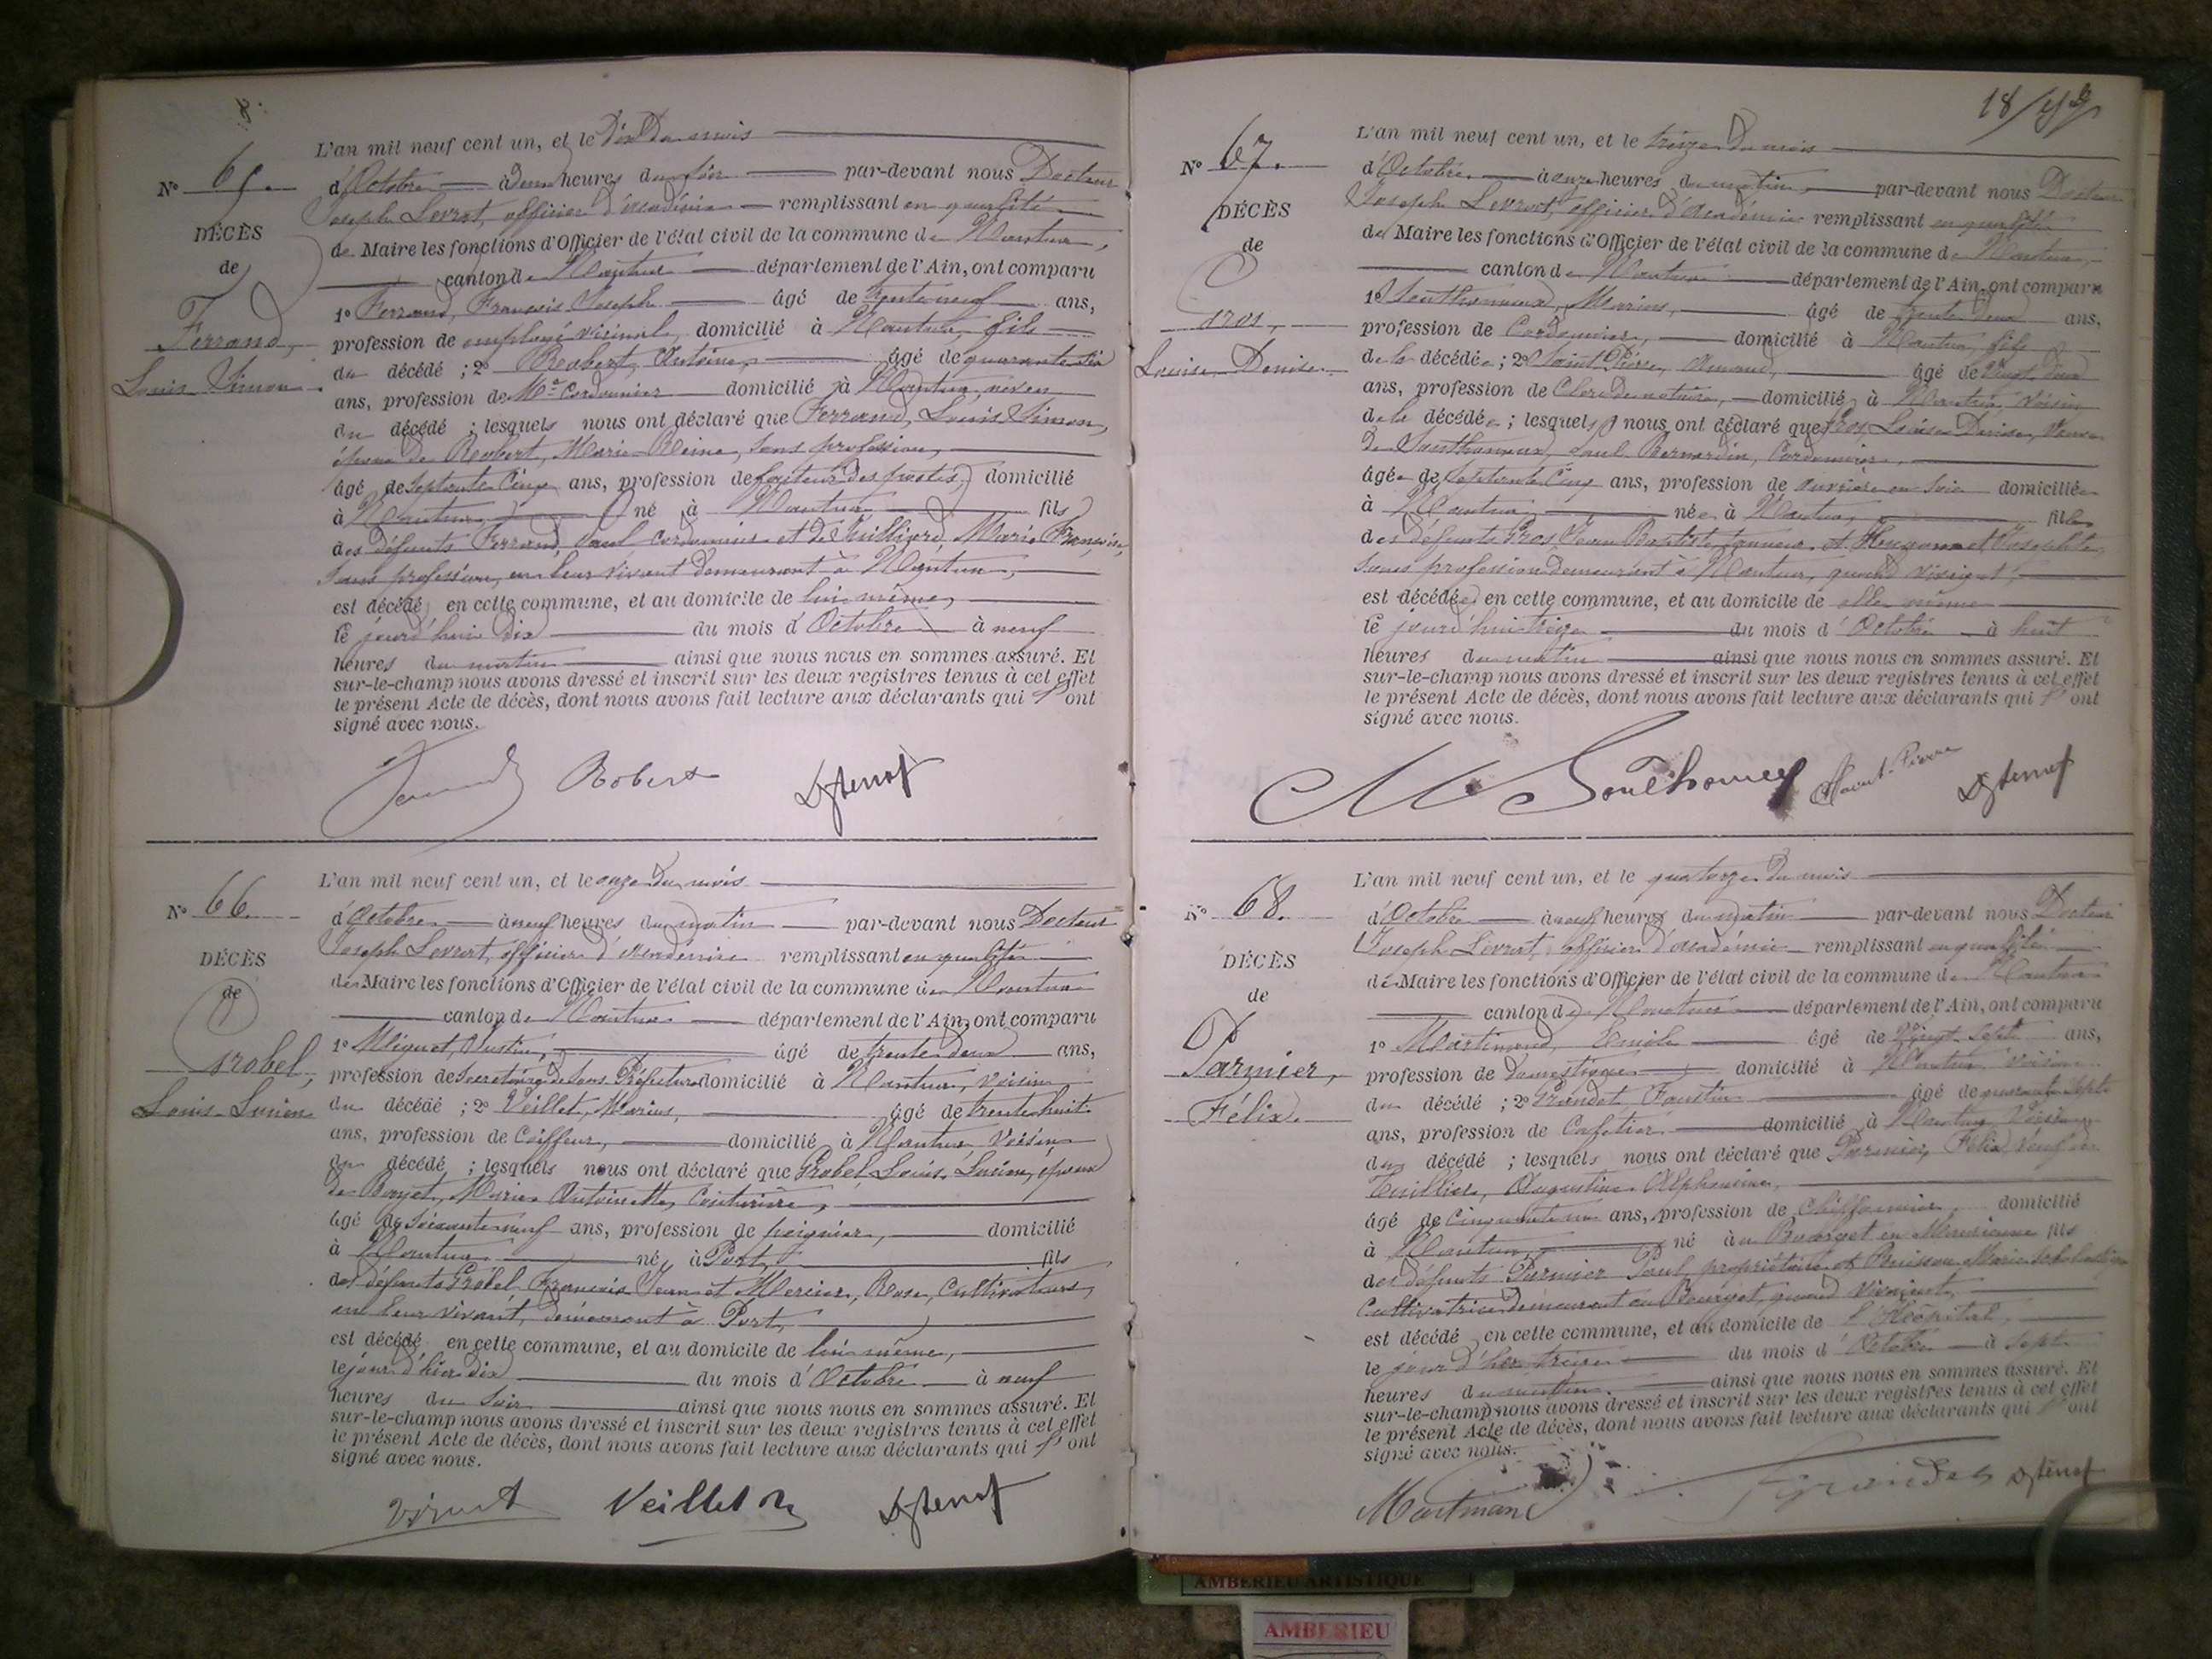 8.
L'an mil neuf cent un, et le dix du mois
N° 65.
d'Octobre à deux heures du soir par-devant nous Docteur
Joseph Levrat, officier d'académie remplissant en qualité
DÉCÈS
de Maire les fonctions d'Officier de l'état civil de la commune de Nantua,
de
canton de Nantua département de l'Ain, ont comparu
1° Ferrand, François Joseph âgé de trente neuf ans,
Ferrand,
profession de employé vicinal domicilié à Nantua, fils
du décédé ; 2° Robert, Antoine, âgé de quarante six
Louis Simon
ans, profession de Me Cordonnier domicilié à Nantua, neveu
du décédé ; lesquels nous ont déclaré que Ferrand, Louis Simon,
époux de Robert, Marie Reine, sans profession,
âgé de septante cinq ans, profession de facteur des postes, domicilié
à Nantua né à Nantua fils
des défunts Ferrand, Paul cordonnier et de Juilliard, Marie Françoise,
sans profession, en leur vivant demeurant à Nantua,
est décédé en cette commune, et au domicile de lui même,
le jourd'hui dix du mois d'Octobre à neuf
heures du matin ainsi que nous nous en sommes assuré. Et
sur-le-champ nous avons dressé et inscrit sur les deux registres tenus à cet effet
le présent Acte de décès, dont nous avons fait lecture aux déclarants qui l'ont
signé avec nous.
Robert
L'an mil neuf cent un, et le onze du mois
N° 66.
d'Octobre à neuf heures du matin par-devant nous Docteur
Joseph Levrat, officier d'académie remplissant en qualité
DÉCÈS
de Maire les fonctions d'Officier de l'état civil de la commune de Nantua
de
canton de Nantua département de l'Ain, ont comparu
1° Miguet, Justin, âgé de trente deux ans,
Grobel,
profession de Secrétaire de Sous Préfecture domicilié à Nantua, voisin
Louis Lucien
du décédé ; 2° Veillet, Marius, âgé de trente huit
ans, profession de Coiffeur, domicilié à Nantua, voisin
du décédé ; lesquels nous ont déclaré que Grobel Louis Lucien, époux
de Bayet, Marie Antoinette, Couturière,
âgé de soixante neuf ans, profession de peignier, domicilié
à Nantua né à Port, fils
des défunts Grobel François Jean et Mercier, Rose, Cultivateurs,
en leur vivant, demeurant à Port,
est décédé en cette commune, et au domicile de lui même,
le jour d'hier dix du mois d'Octobre à neuf
heures du soir ainsi que nous nous en sommes assuré. Et
sur-le-champ nous avons dressé et inscrit sur les deux registres tenus à cet effet
le présent Acte de décès, dont nous avons fait lecture aux déclarants qui l'ont
signé avec nous.
Veillet M
18/
L'an mil neuf cent un, et le treize du mois
N° 67.
d'Octobre à onze heures du matin par-devant nous Docteur
Joseph Levrat, officier d'Académie remplissant en qualité
DÉCÈS
de Maire les fonctions d'Officier de l'état civil de la commune de Nantua,
de
canton de Nantua département de l'Ain, ont comparu
1° Southonnax, Marius, âgé de trente deux ans,
Gros,
profession de Cordonnier, domicilié à Nantua, fils
Louise Denise
de la décédée ; 2° Saint Pierre, âgé de vingt deux
ans, profession de Clerc de notaire, domicilié à Nantua, voisin
de la décédée ; lesquels nous ont déclaré que Gros, Louise Denise, Veuve
de Southonnax, Paul Bernardin, Cordonnier,
âgée de septante cinq ans, profession de ouvrière en soie domiciliée
à Nantua, née à Nantua, fille
des défunts Gros, Jean Baptiste, tanneur et Josephte
sans profession demeurant à Nantua, quand vivaient,
est décédée en cette commune, et au domicile de elle même
le jourd'hui treize du mois d'Octobre à huit
heures du matin ainsi que nous nous en sommes assuré. Et
sur-le-champ nous avons dressé et inscrit sur les deux registres tenus à cet effet
le présent Acte de décès, dont nous avons fait lecture aux déclarants qui l'ont
signé avec nous.
M Southonnax Saint-Pierre
L'an mil neuf cent un, et le quatorze du mois
N° 68.
d'Octobre à neuf heures du matin par-devant nous Docteur
Joseph Levrat, officier d'académie remplissant en qualité
DÉCÈS
de Maire les fonctions d'Officier de l'état civil de la commune de Nantua
de
canton de Nantua département de l'Ain, ont comparu
1° Martinand, Emile âgé de vingt sept ans,
Parmier,
profession de Domestique domicilié à Nantua voisin
Félix.
du décédé ; 2° Grandet, Faustin âgé de quarante sept
ans, profession de Cafetier domicilié à Nantua, voisin
du décédé ; lesquels nous ont déclaré que Parmier, Félix, veuf de
Augustine Alphonsine,
âgé de cinquante un ans, profession de Chiffonnier domicilié
à Nantua, né à au Bourget en Maurienne fils
des défunts Parmier Paul, propriétaire et Buisson Marie
Cultivatrice demeurant au Bourget, quand vivaient,
est décédé en cette commune, et au domicile de l'Hôpital,
le jour d'hier treize du mois d'Octobre à sept
heures du matin. ainsi que nous nous en sommes assuré. Et
sur-le-champ nous avons dressé et inscrit sur les deux registres tenus à cet effet
le présent Acte de décès, dont nous avons fait lecture aux déclarants qui l'ont
signé avec nous.
AMBERIEU ARTISTIQUE
AMBERIEU